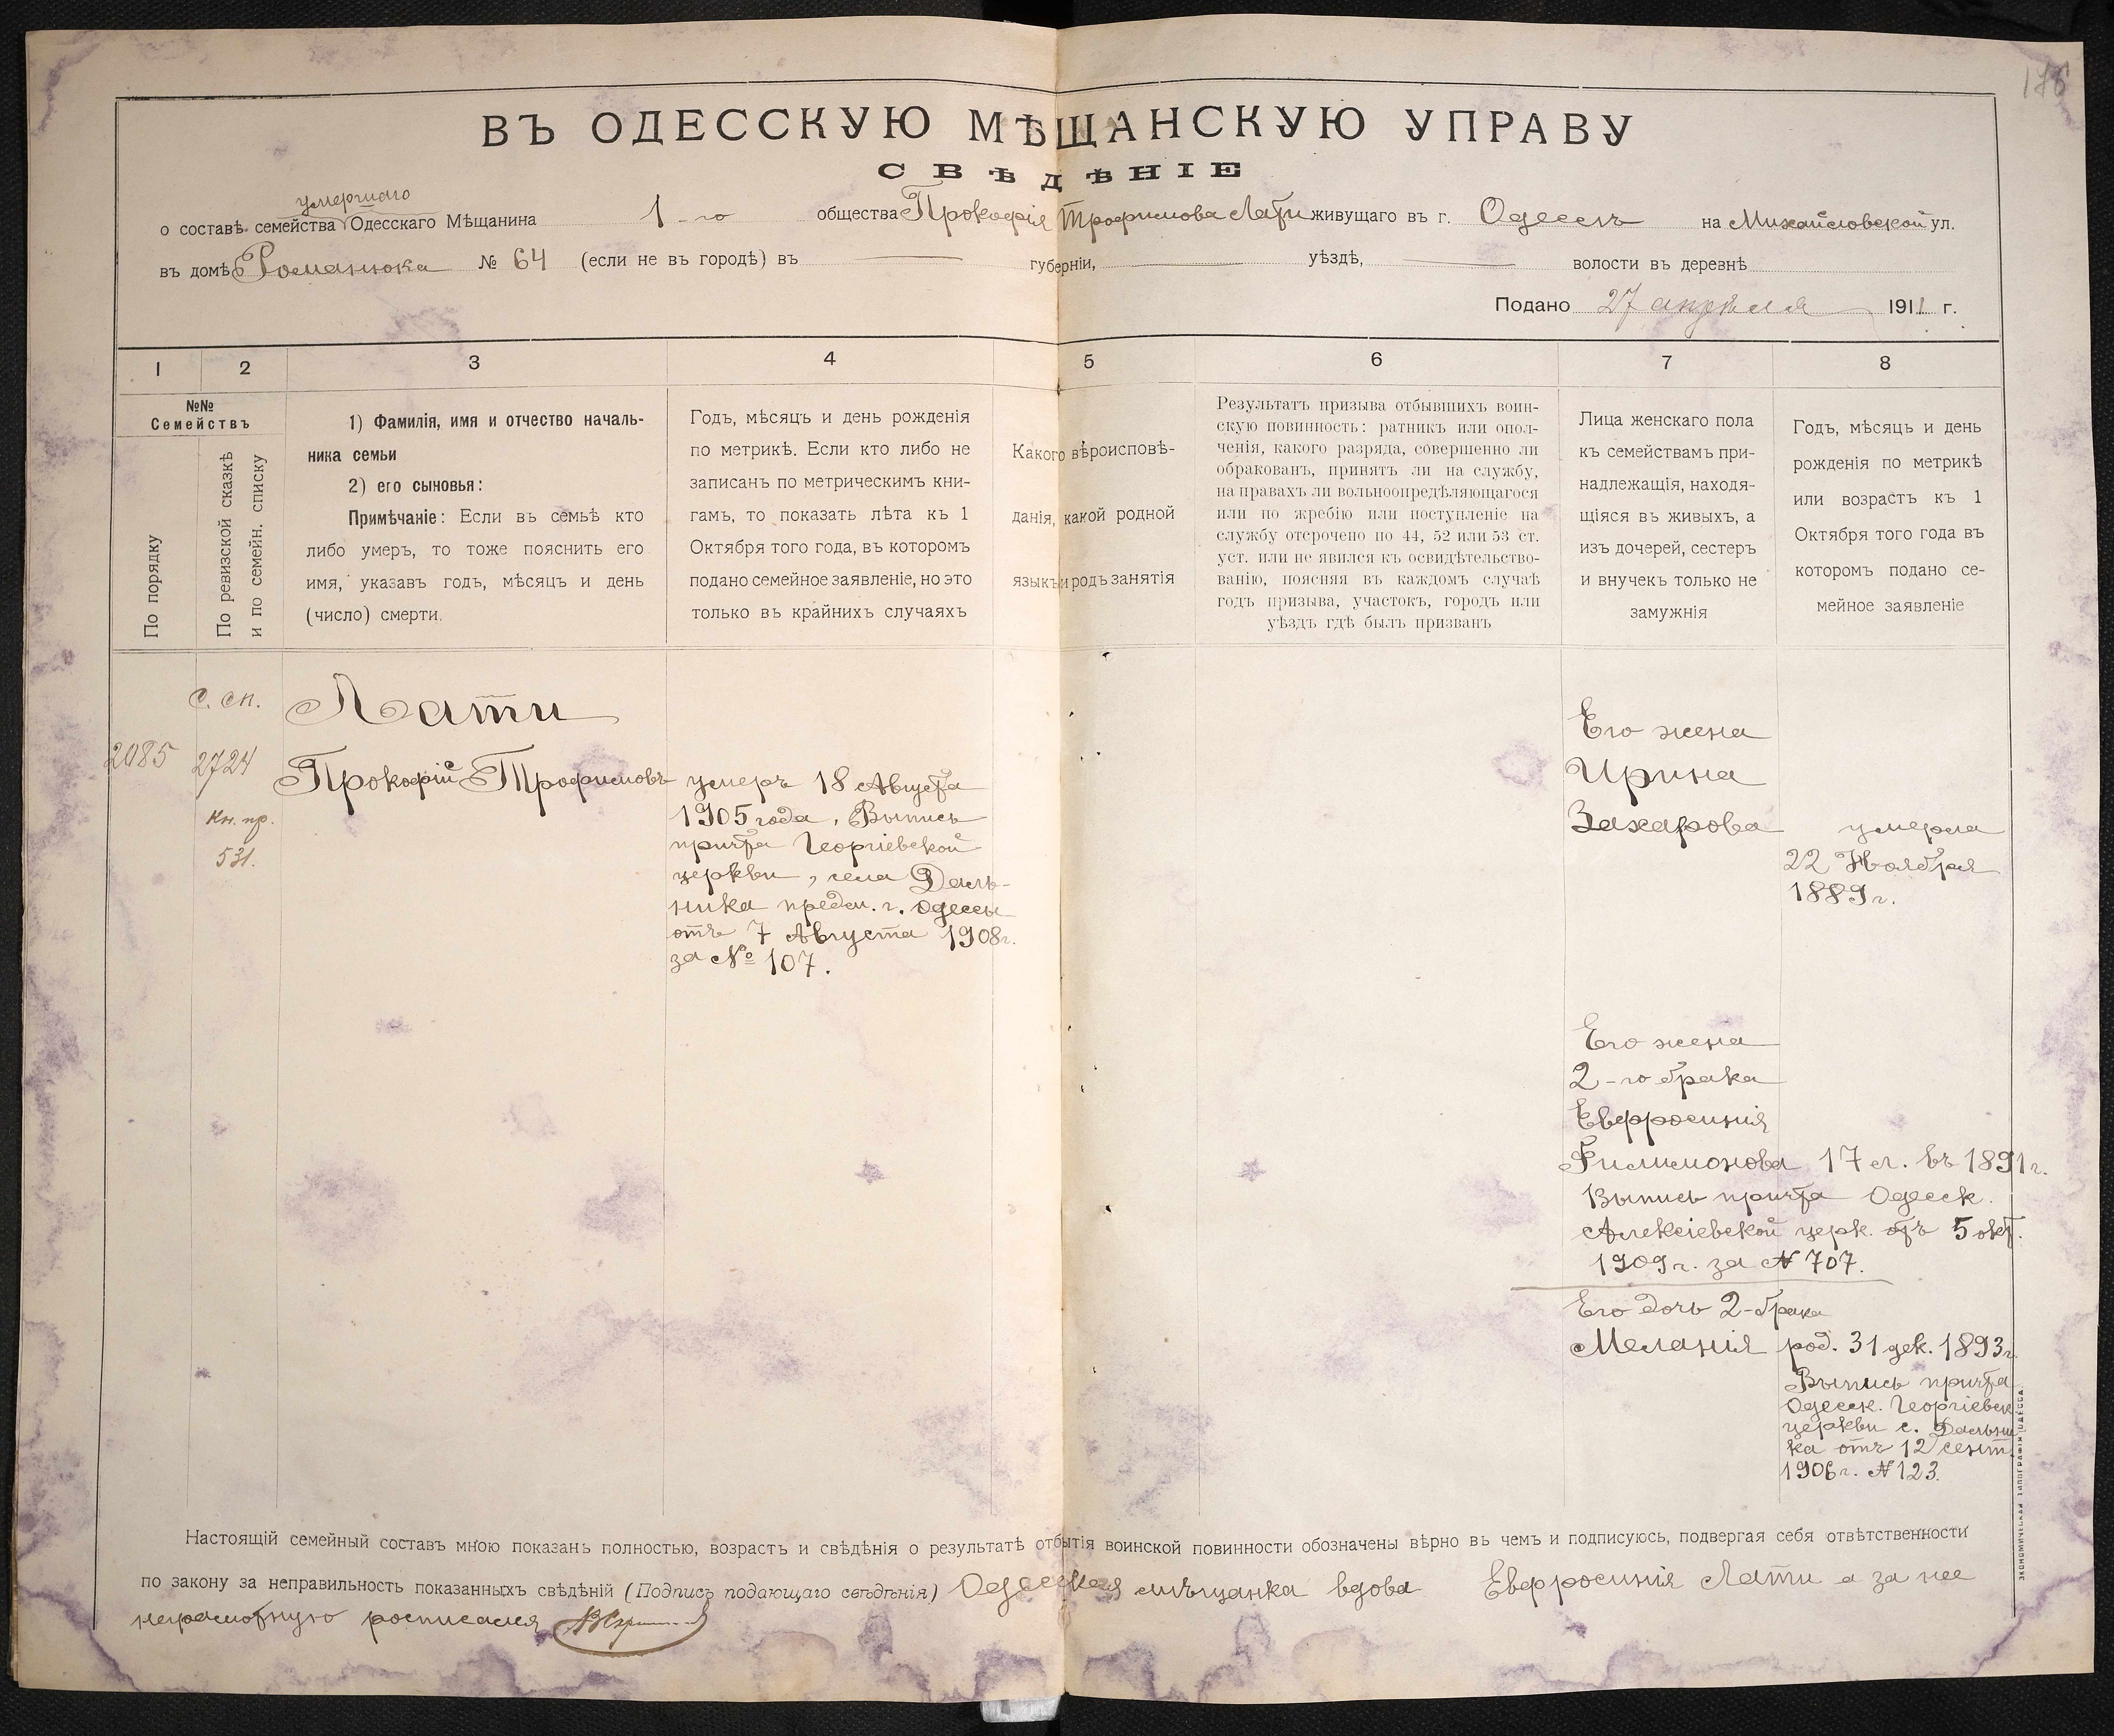 176
ВЪ ОДЕССКУЮ МѢЩАНСКУЮ УПРАВУ
СВѢДѢНІЕ
умершаго
о составѣ семейства Одесскаго Мѣщанина 1-го общества Прокофія Трофимова Лати живущаго въ г. Одессѣ на Михайловской ул.
въ домѣ Романюка № 64 (если не въ городѣ) въ — губерніи, — уѣздѣ, — волости въ деревнѣ
Подано 27 апрѣля 1911 г.
1 2 3 4 5 6 7 8
№№
Семействъ
По порядку
По ревизской сказкѣ
и по семейн. списку
1) Фамилія, имя и отчество началь-
ника семьи
2) его сыновья:
Примѣчаніе: Если въ семьѣ кто
либо умеръ, то тоже пояснить его
имя, указавъ годъ, мѣсяцъ и день
(число) смерти.
Годъ, мѣсяцъ и день рожденія
по метрикѣ. Если кто либо не
записанъ по метрическимъ кни-
гамъ, то показать лѣта къ 1
Октября того года, въ которомъ
подано семейное заявленіе, но это
только въ крайнихъ случаяхъ
Какого вѣроисповѣ-
данія, какой родной
языкъ и родъ занятія
Результатъ призыва отбывшихъ воин-
скую повинность: ратникъ или опол-
ченія, какого разряда, совершенно ли
обракованъ, принятъ ли на службу,
на правахъ ли вольноопредѣляющагося
или по жребію или поступленіе на
службу отсрочено по 44, 52 или 53 ст.
уст. или не явился къ освидѣтельство-
ванію, поясняя въ каждомъ случаѣ
годъ призыва, участокъ, городъ или
уѣздъ гдѣ былъ призванъ
Лица женскаго пола
къ семействамъ при-
надлежащія, находя-
щіяся въ живыхъ, а
изъ дочерей, сестеръ
и внучекъ только не
замужнія
Годъ, мѣсяцъ и день
рожденія по метрикѣ
или возрастъ къ 1
Октября того года въ
которомъ подано се-
мейное заявленіе
2085
с. сп.
2724
Кн. пр.
531.
Лати
Прокофій Трофимовъ
умеръ 18 Августа
1905 года, Выпись
причта Георгіевской
церкви, села Даль-
ника предм. г. Одессы
отъ 7 Августа 1908г.
за № 107.
Его жена
Ирина
Захарова
умерла
22 Ноября
1889 г.
Его жена
2-го брака
Евфросинія
Филимонова 17 л. въ 1891 г.
Выпись причта Одесск.
Алексіевской церк. отъ 5 окт.
1909 г. за № 707.
Его дочь 2-брака
Меланія род. 31 дек. 1893г.
Выпись причта
Одесск. Георгіевск
церкви с. Дальни
ка отъ 12 сент.
1906 г. № 123.
Настоящій семейный составъ мною показанъ полностью, возрастъ и свѣдѣнія о результатѣ отбытія воинской повинности обозначены вѣрно въ чемъ и подписуюсь, подвергая себя отвѣтственности
по закону за неправильность показанныхъ свѣдѣній (Подпись подающаго свѣдѣнія) Одесская мѣщанка вдова Евфросинія Лати а за нее
неграмотную росписался
ЭКОНОМИЧЕСКАЯ ТИПОГРАФІЯ ОДЕССА.